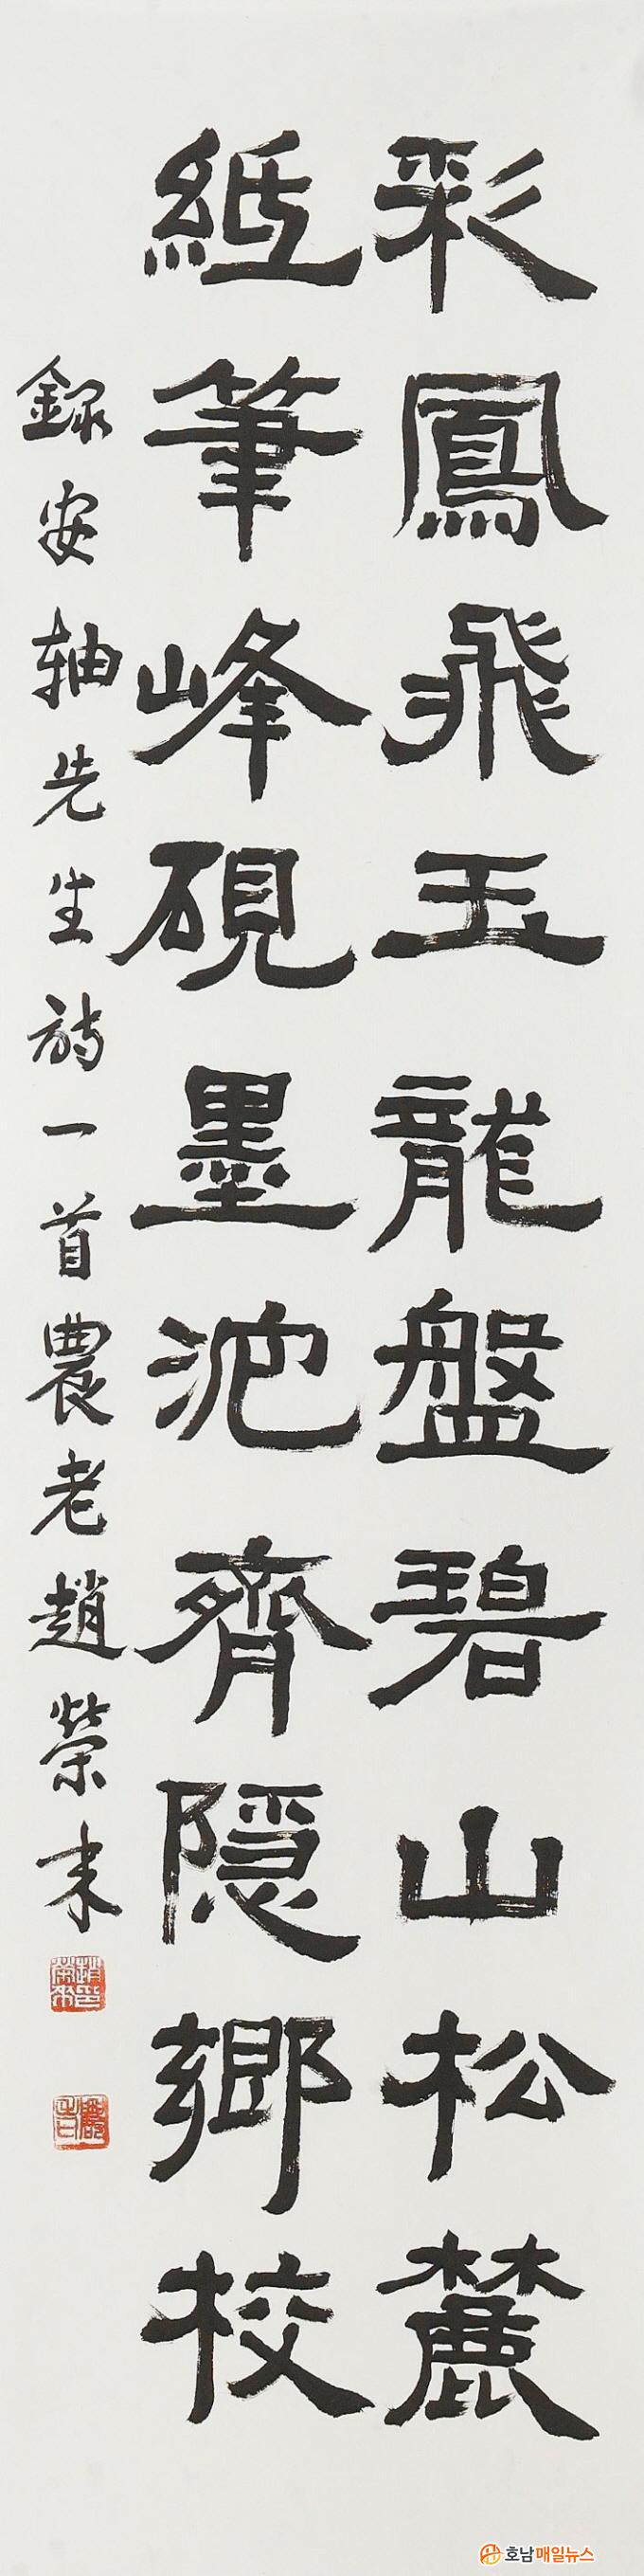 彩鳳飛玉龍盤碧山松麓
紙筆峰硯墨池齊隱鄉校
錄安軸先生詩一首農老趙榮來
호남매일뉴스